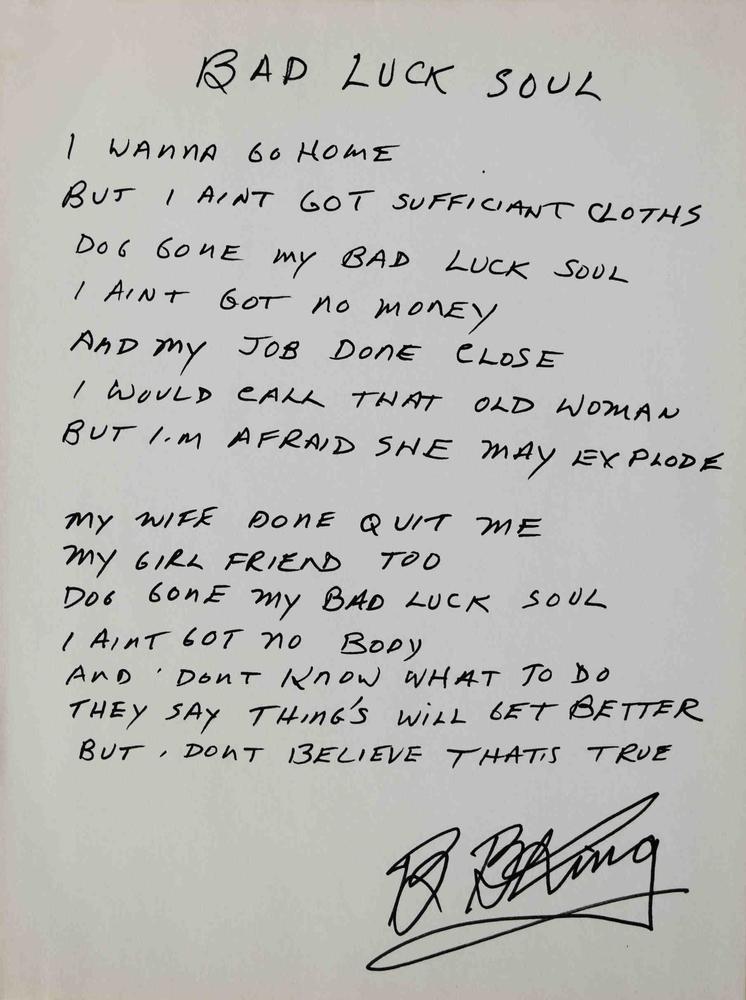 BAD LUCK SOUL
I WANNA GO HOME
BUT I AINT GOT SUFFICIANT CLOTHS
DOG GONE MY BAD LUCK SOUL
I AINT GOT NO MONEY
AND MY JOB DONE CLOSE
I WOULD CALL THAT OLD WOMAN
BUT I.M AFRAID SHE MAY EXPLODE
MY WIFE DONE QUIT ME
MY GIRL FRIEND TOO
DOG GONE MY BAD LUCK SOUL
I AINT GOT NO BODY
AND ' DONT KNOW WHAT TO DO
THEY SAY THING'S WILL GET BETTER
BUT . DONT BELIEVE THATIS TRUE
B B King